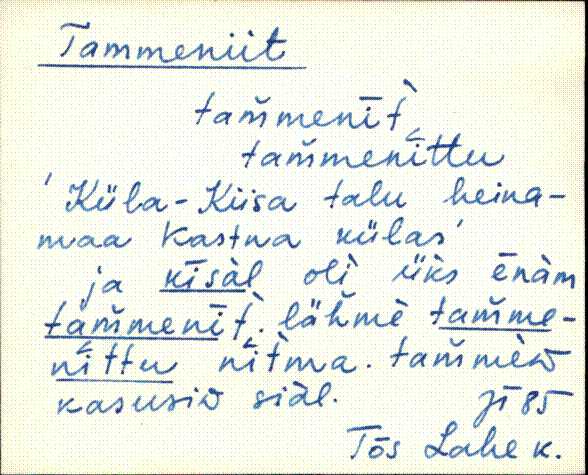 Tammeniit
tam̆menīt̀
tam̆menìttu
'Küla-Kiisa talu heina-
maa Kastna külas'
ja kīsàl olì üks ēnàm
tam̆menīt̀. läh̆mè tam̆me-
nìttu nìtma. tam̆mèD
kasusiD siàl.
JT 85
Tõs Lahe k.